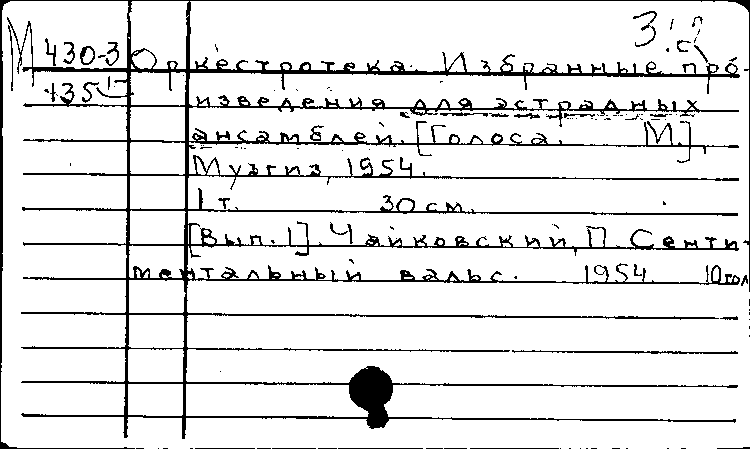 М 430-3
435
Оркестротека. Избранные про-
изведения для эстрадных
ансамблей. [Голоса. М.],
Музгиз, 1954.
1 т. 30 см.
[Вып. 1]. Чайковский, П. Сенти-
ментальный вальс. 1954. 10 гол